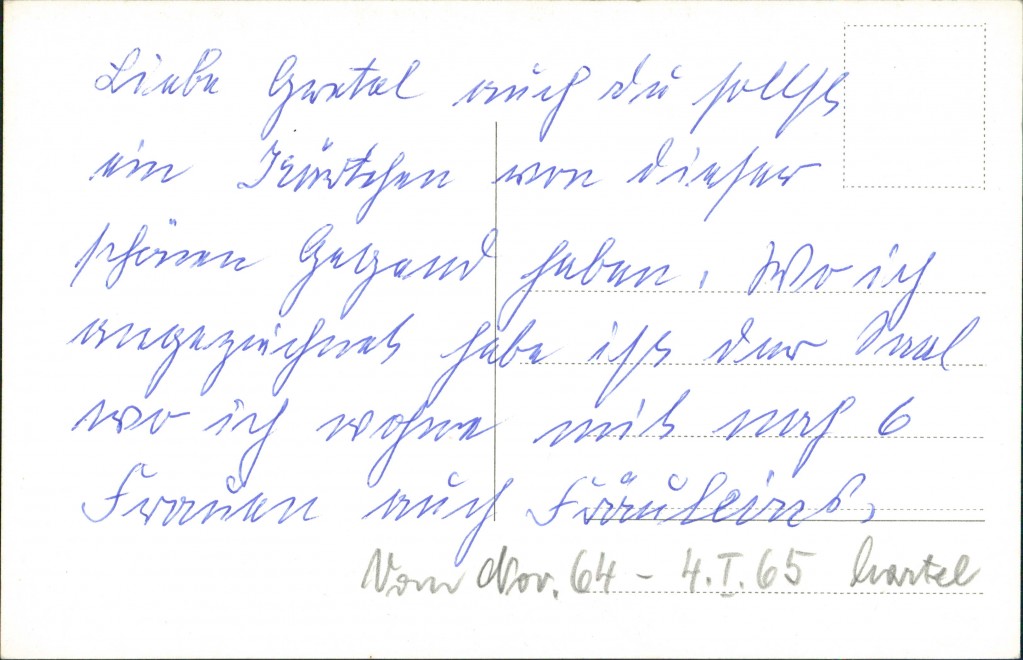 Liebe Gretel auch du sollst
ein Kärtchen von dieser
schönen Gegend haben. Wo ich
angezeichnet habe ist der Saal
wo ich wohne mit noch 6
Frauen auch Fräuleins,
Vom Nov. 64 – 4.I.65